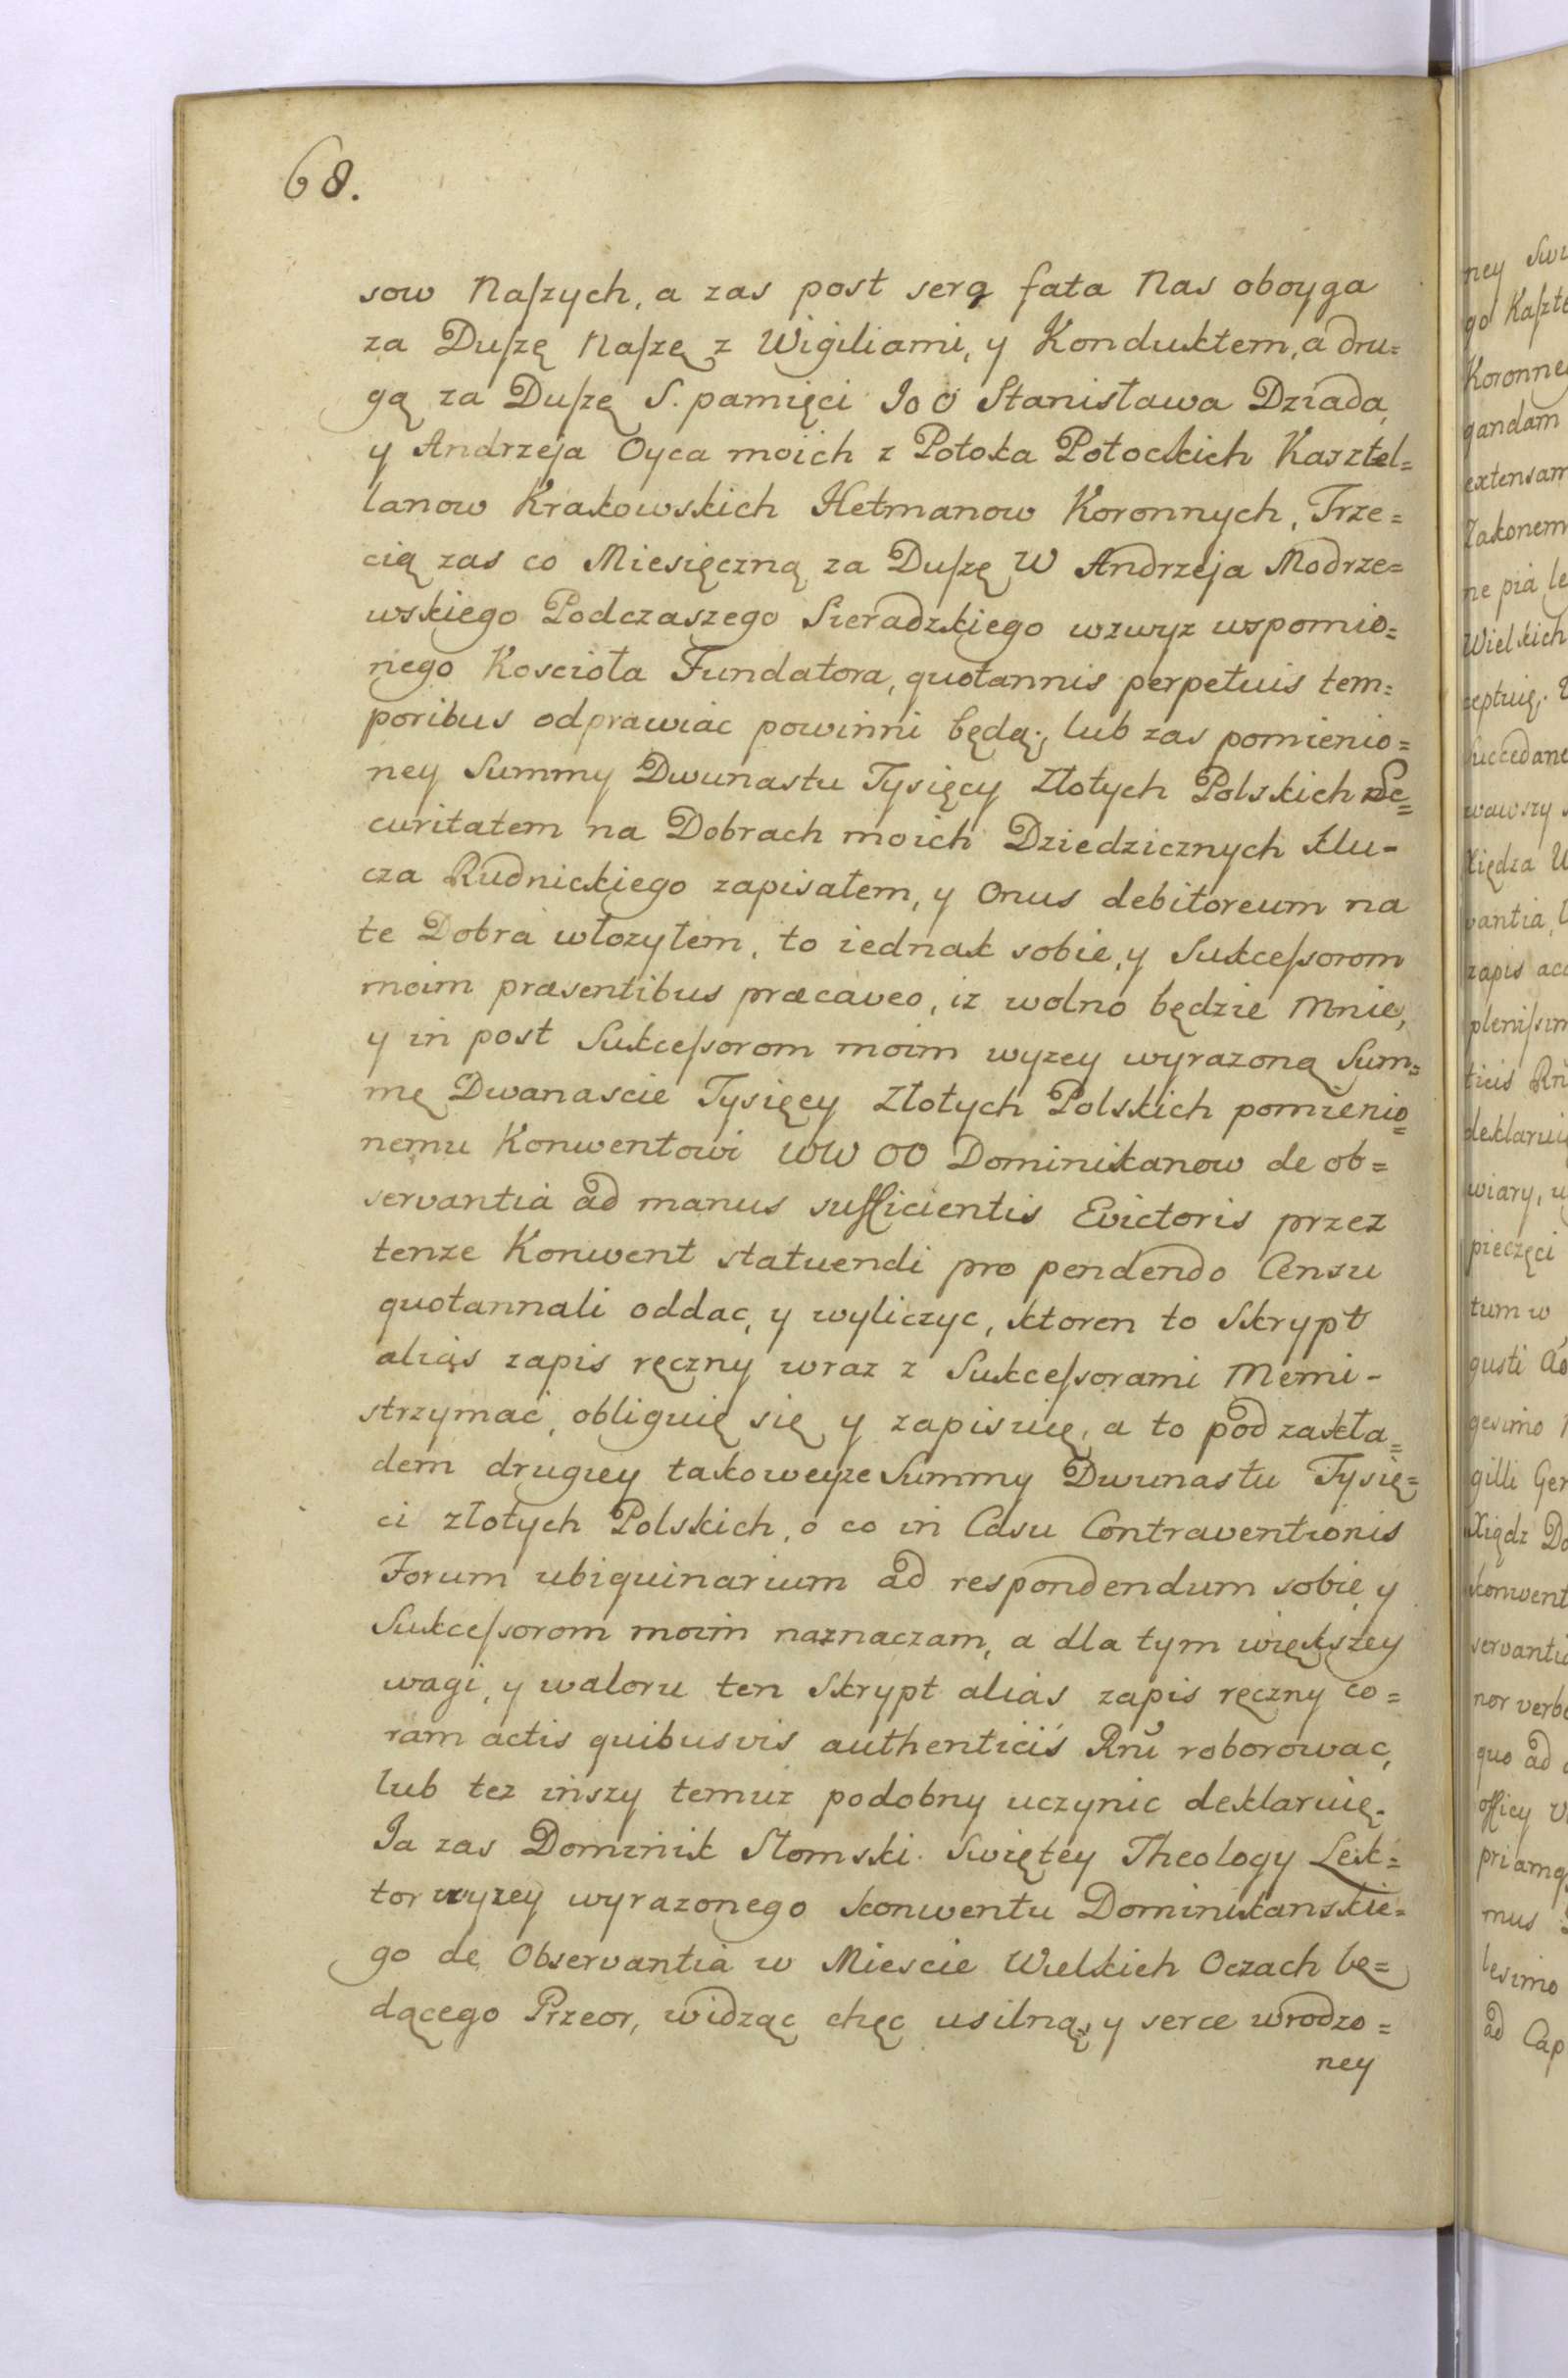 68.
sow Naſzych, a zas post serą fata Nas oboyga
za Duſzę Naſzę z Wigiliami, y Konduktem, a dru=
gą za Duſzę S. pamięci JoO Stanisława Dziada,
y Andrzeja Oyca moich z Potoka Potockich Kasztel=
lanow Krakowskich Hetmanow Koronnych, Trze=
cią zas co Miesięczną za Duſzę W Andrzeja Modrze=
wskiego Podczaszego Sieradzkiego wzwyz wspomio=
nego Koscioła Fundatora, quotannis perpetuis tem=
poribus odprawiac powinni będą; lub zas pomienio=
ney Summy Dwunastu Tysięcy Złotych Polskich Se=
curitatem na Dobrach moich Dziedzicznych klu-
cza Rudnickiego zapisałem, y Onus debitoreum na
te Dobra włozyłem, to iednak sobie, y Sukceſsorom
moim præsentibus præcaveo, iz wolno będzie Mnie,
y in post Sukceſsorom moim wyzey wyrazoną Sum=
mę Dwanascie Tysięcy Złotych Polskich pomienio=
nemu Konwentowi WW OO Dominikanow de ob=
servantia ad manus sufficientis Evictoris przez
tenze Konwent statuendi pro pendendo Censu
quotannali oddac, y wyliczyc, ktoren to Skrypt
alias zapis ręczny wraz z Sukceſsorami Memi-
strzymać, obliguię się y zapisuię, a to pod zakła=
dem drugiey takoweyze Summy Dwunastu Tysię=
ci złotych Polskich, o co in Casu Contraventionis
Forum ubiquinarium ad respondendum sobie y
Sukceſsorom moim naznaczam, a dla tym większey
wagi, y waloru ten Skrypt alias zapis ręczny co=
ram actis quibusvis authenticis Rnŭ roborowac,
lub tez inszy temuz podobny uczynic deklaruię.
Ja zas Dominik Słomski Swiętey Theology Lek=
tor wyzey wyrazonego konwentu Dominikanskie=
go de Observantia w Miescie Wielkich Oczach bę=
dącego Przeor, widząc chęc usilną, y serce wrodzo=
ney